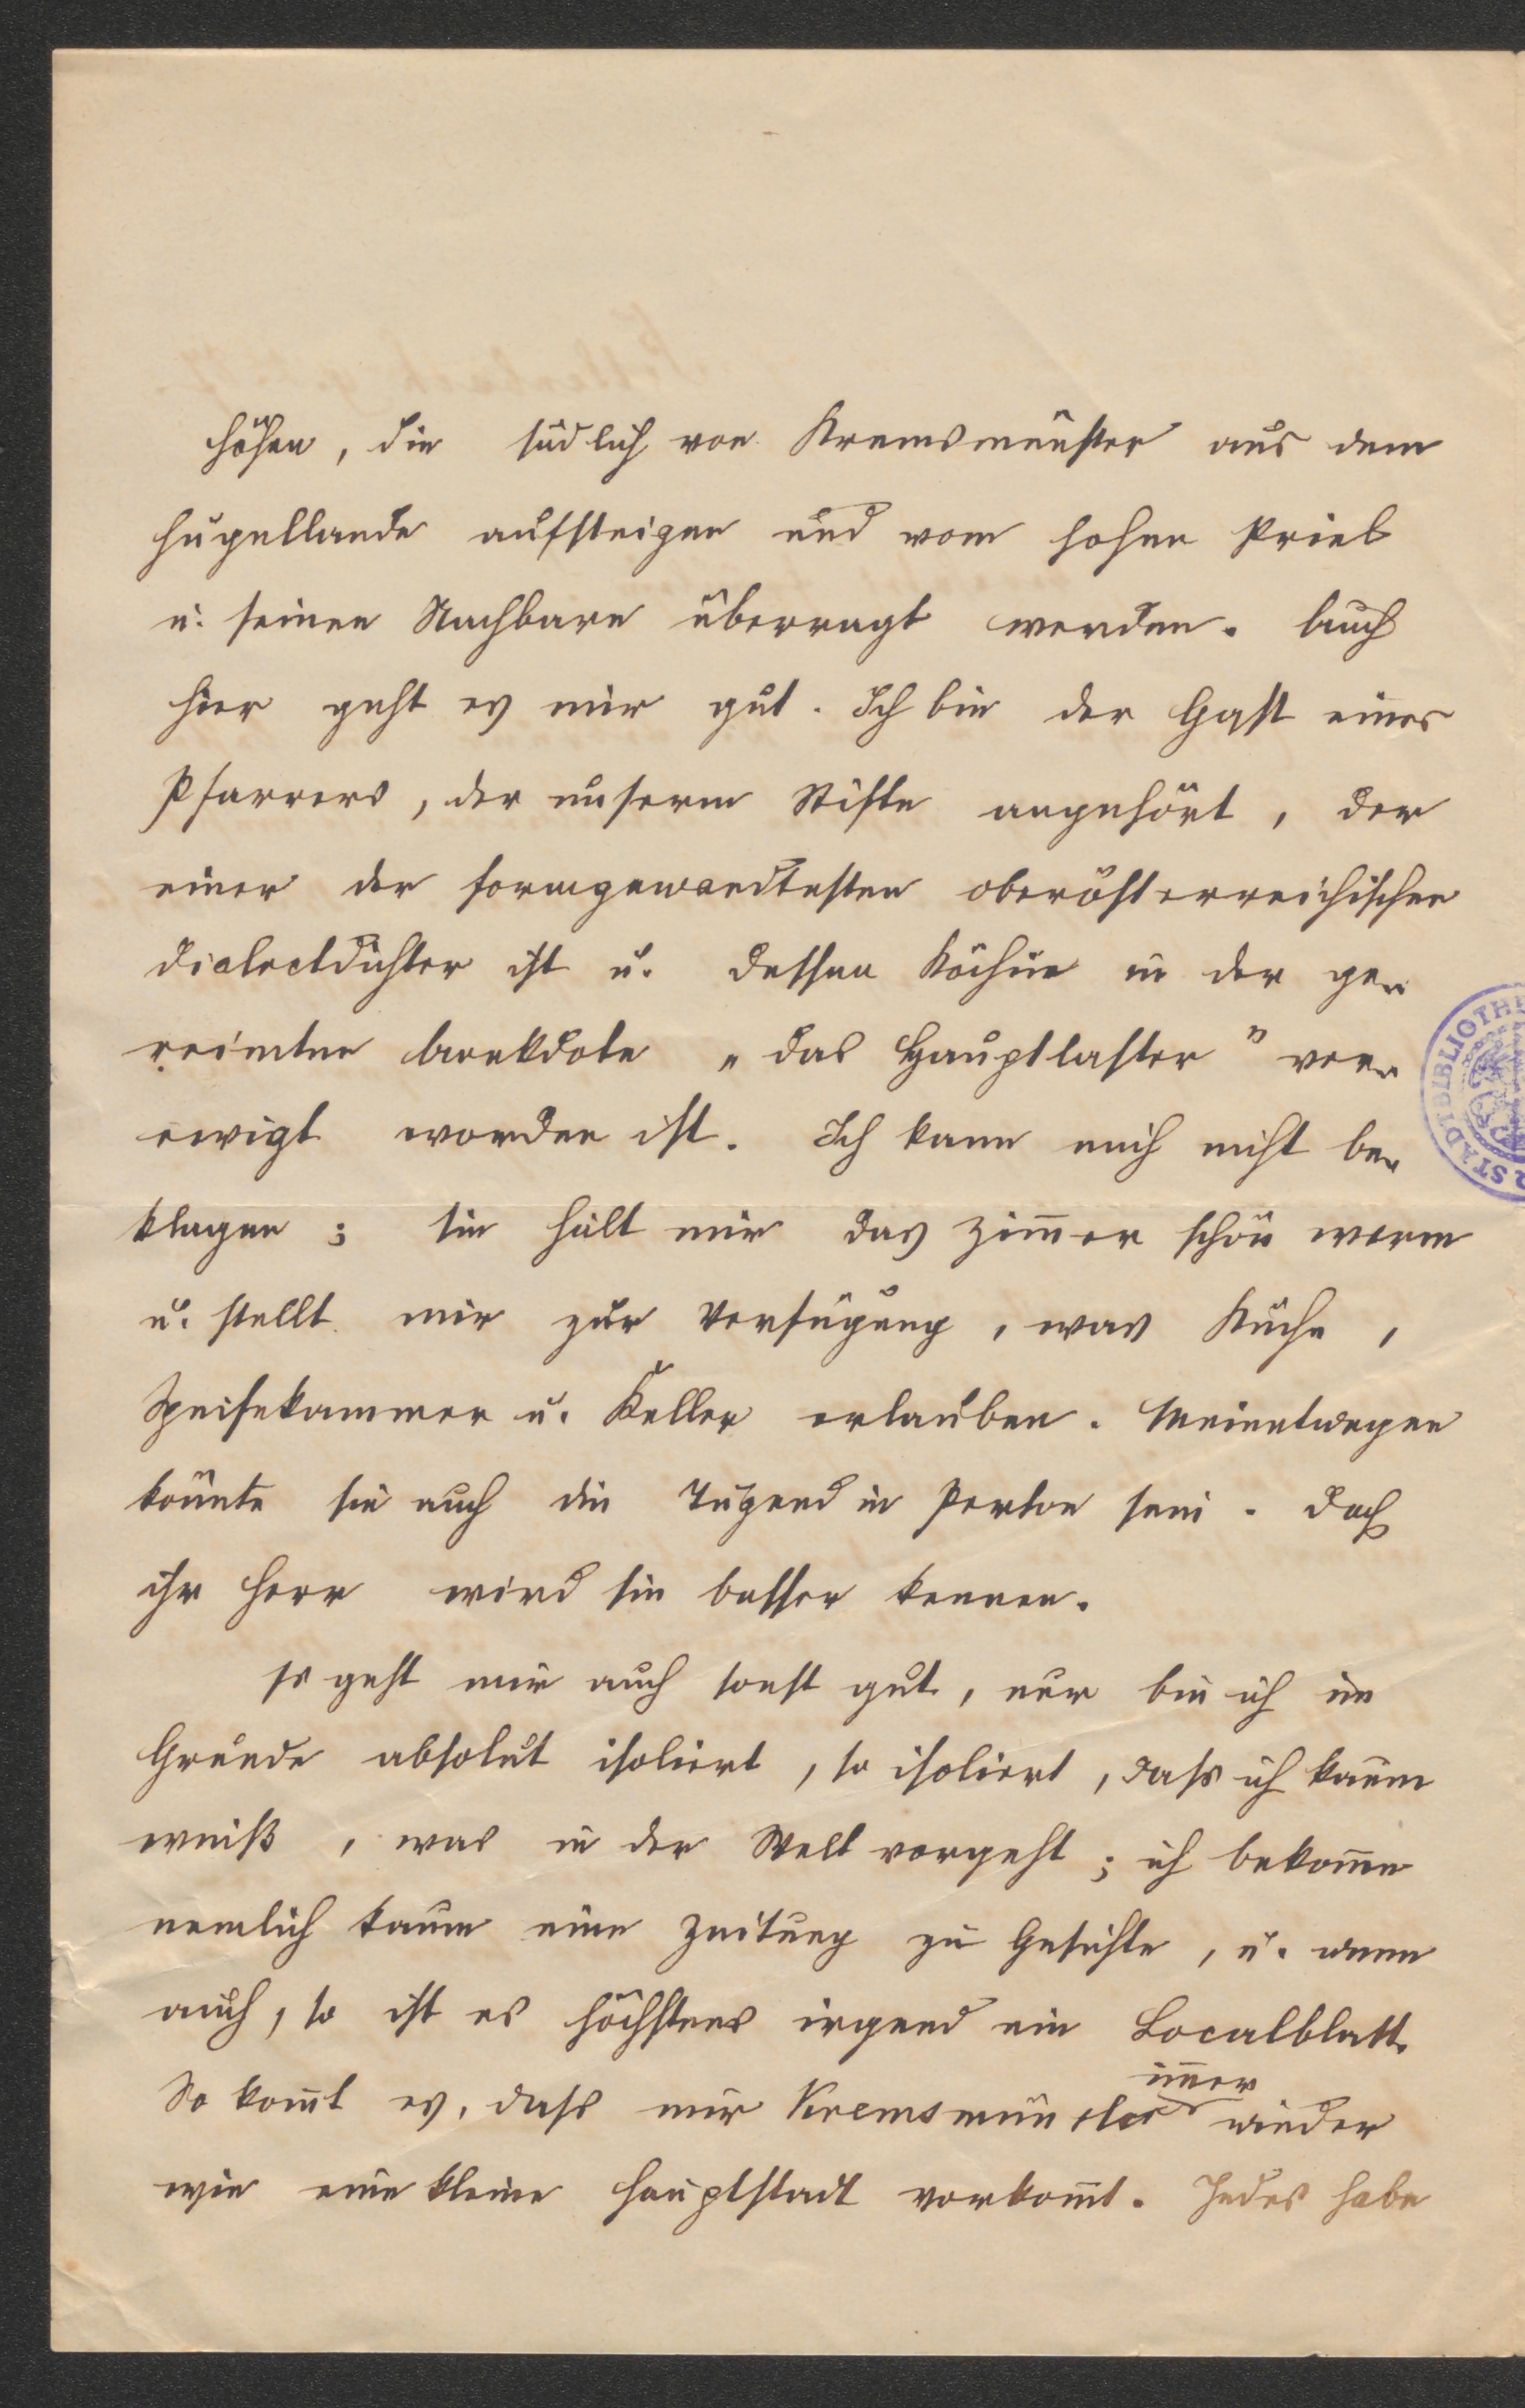 Höhen, die südlich von Kremsmünster aus dem
Hügellande aufsteigen und vom hohen Priel
u. seinen Nachbarn überragt werden. Auch
hier geht es mir gut. Ich bin der Gast eines
Pfarrers, der unserm Stifte angehört, der
einer der formgewandtesten oberösterreichischen
Dialectdichter ist u. dessen Köchin in der ge=
reimten Anekdote „das Hauptlaster" ver=
ewigt worden ist. Ich kann mich nicht be=
klagen; sie hält mir das Zim̅er schön warm
u. stellt mir zur Verfügung, was Küche,
Speisekammer u. Keller erlauben. Meinetwegen
könnte sie auch die Tugend in Person sein. Doch
ihr Herr wird sie besser kennen.
Es geht mir auch sonst gut, nur bin ich im
Grunde absolut isoliert, so isoliert, dass ich kaum
weiß, was in der Welt vorgeht; ich bekom̅e
nemlich kaum eine Zeitung zu Gesichte, u. wenn
auch, so ist es höchstens irgend ein Localblatt.
So kom̅t es, dass mir Kremsmünster im̅er wieder
wie eine kleine Hauptstadt vorkom̅t. Jedes habe
STADTBIBLIOTHE